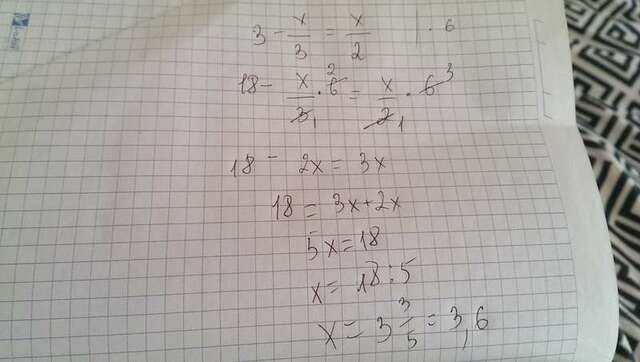 3 - x/3 = x/2 | · 6
18 - x/3 · 6 2 1 = x/2 · 6 3 1
18 - 2x = 3x
18 = 3x + 2x
5x = 18
x = 18 : 5
x = 3 3/5 = 3,6